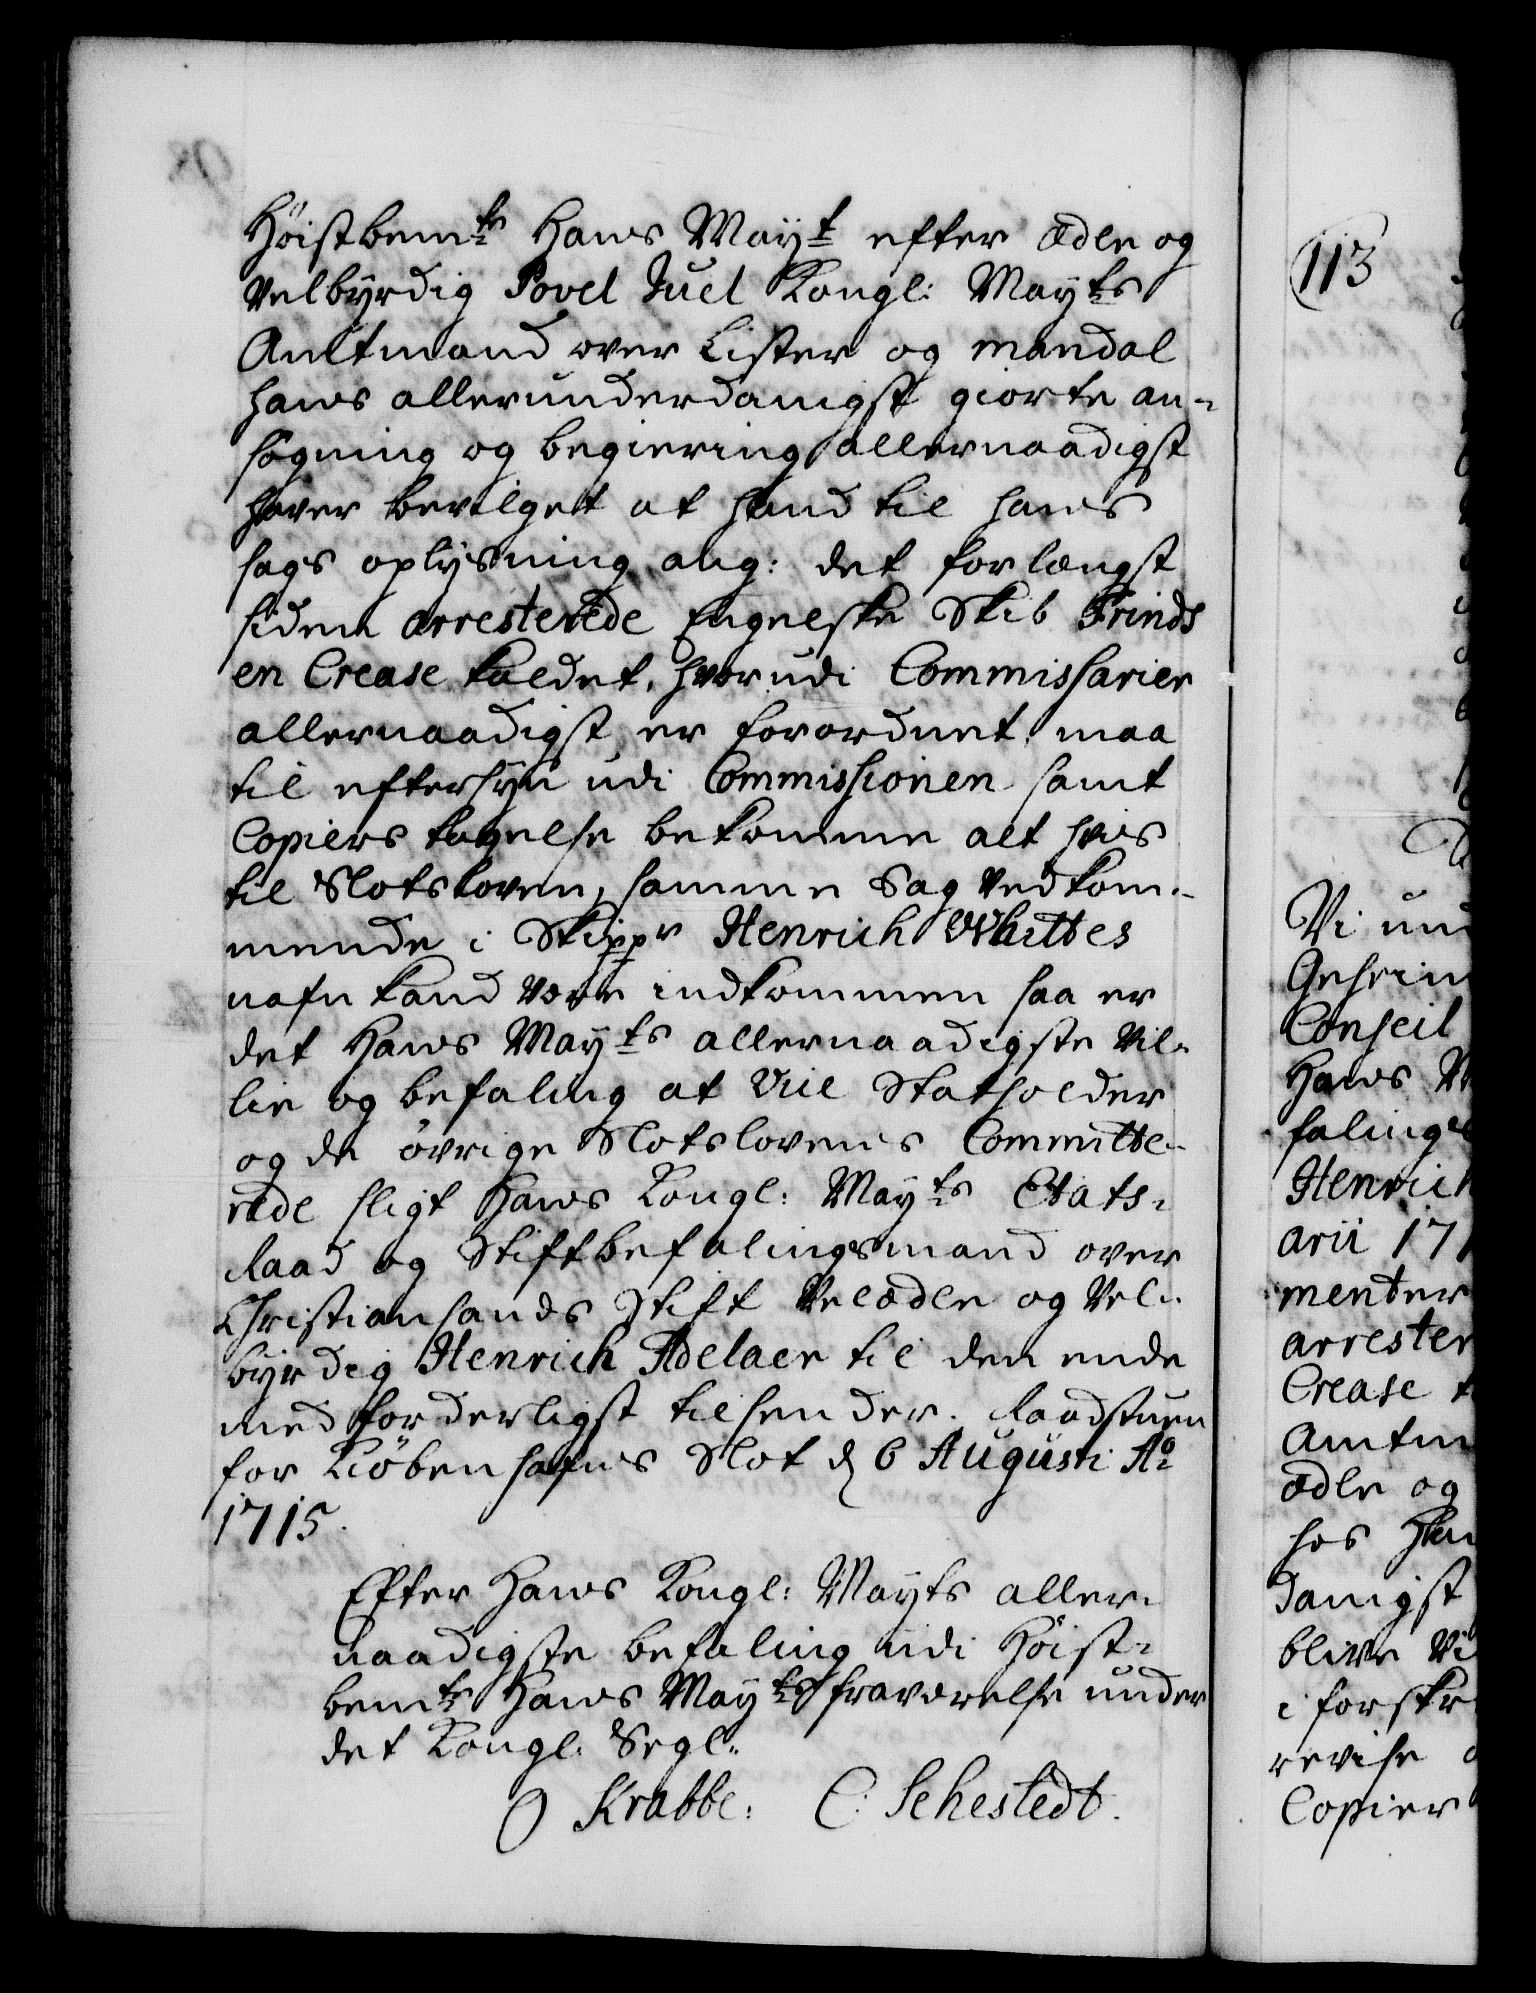 Høistbemte Hans Mayt efter ædle og
Velbyrdig Povel Juel Kongl: Mayts
Ambtmand over Lister og Mandal
hans allerunderdanigst giorte an-
søgning og begiering allernaadigst
haver bevilget at hand til hans
sags oplysning ang: det for længst
siden arresterede Engelske Skib Frinds
en Crease kaldet, hvorudi Commissarier
allernaadigst er forordnet, maa
til eftersyn udi Commissionen samt
Copiers tagelse bekomme alt hvis
til Slotsloven, samme Sag vedkom-
mende i Skippr Henrich Whittes
nafn kand være indkommen saa er
det Hans Mayts allernaadigste Vil-
lie og befaling at Vice Statholder
og de øvrige Slotslovens Committe-
rede sligt Hans Kongl: Mayts Etats-
Raad og Stiftbefalingsmand over
Christiansands Stift Velædle og Vel-
byrdig Henrich Adelaer til den ende
med forderligst tilsender. Raadstuen
for Kiöbenhafns Slot d 6 Augusti Ao
1715.
Efter Hans Kongl: Mayts aller-
naadigste befaling udi Høist-
bemte Hans Mayts fraværelse under
det Kongl: Segl.
O Krabbe: C: Sehestedt.
113
Vi und
Geheim
Conseil
Hans M
faling
Henrich
arii 171
menter
arrester
Crease
Amtm
ædle og
hos Han
danigst
blive Vi
i forskr
revise
Copier